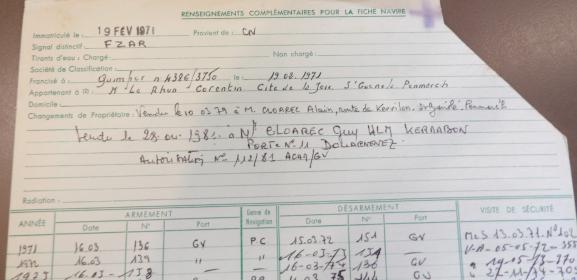 RENSEIGNEMENTS COMPLÉMENTAIRES POUR LA FICHE NAVIRE
Immatriculé le : 19 FEV 1971 Provient de : CN
Signal distinctif : FZAR
Tirants d'eau : Chargé : Non chargé :
Société de Classification :
Francisé à : Quimper n 4386/3750 le : 19.02.1971
Appartenant à : Mr Le Rhun Corentin Cité de la Joie, St Guénolé Penmarch
Domicile :
Changements de Propriétaire : Vendu le 10 03 79 à M. CLOAREC Alain, route de Kervilon, St Guénolé Penmarc'h
Vendu le 28.04.1981 à Mr CLOAREC Guy HLM KERRABON
PORTE N° 11 DOUARNENEZ
Autorisation N° 112/81 ACAM/GV
Radiation :
ARMEMENT Genre de Navigation DÉSARMEMENT VISITE DE SÉCURITÉ
ANNÉE Date N° Port Date N° Port
1971 16.03 136 GV PC 15.03.72 151 GV MeS 13.03.71 N° 102
16.03 139 " " 16-03-73 134 GV V.A-05-05-72=355
1973 16-03-138 136 GV
75